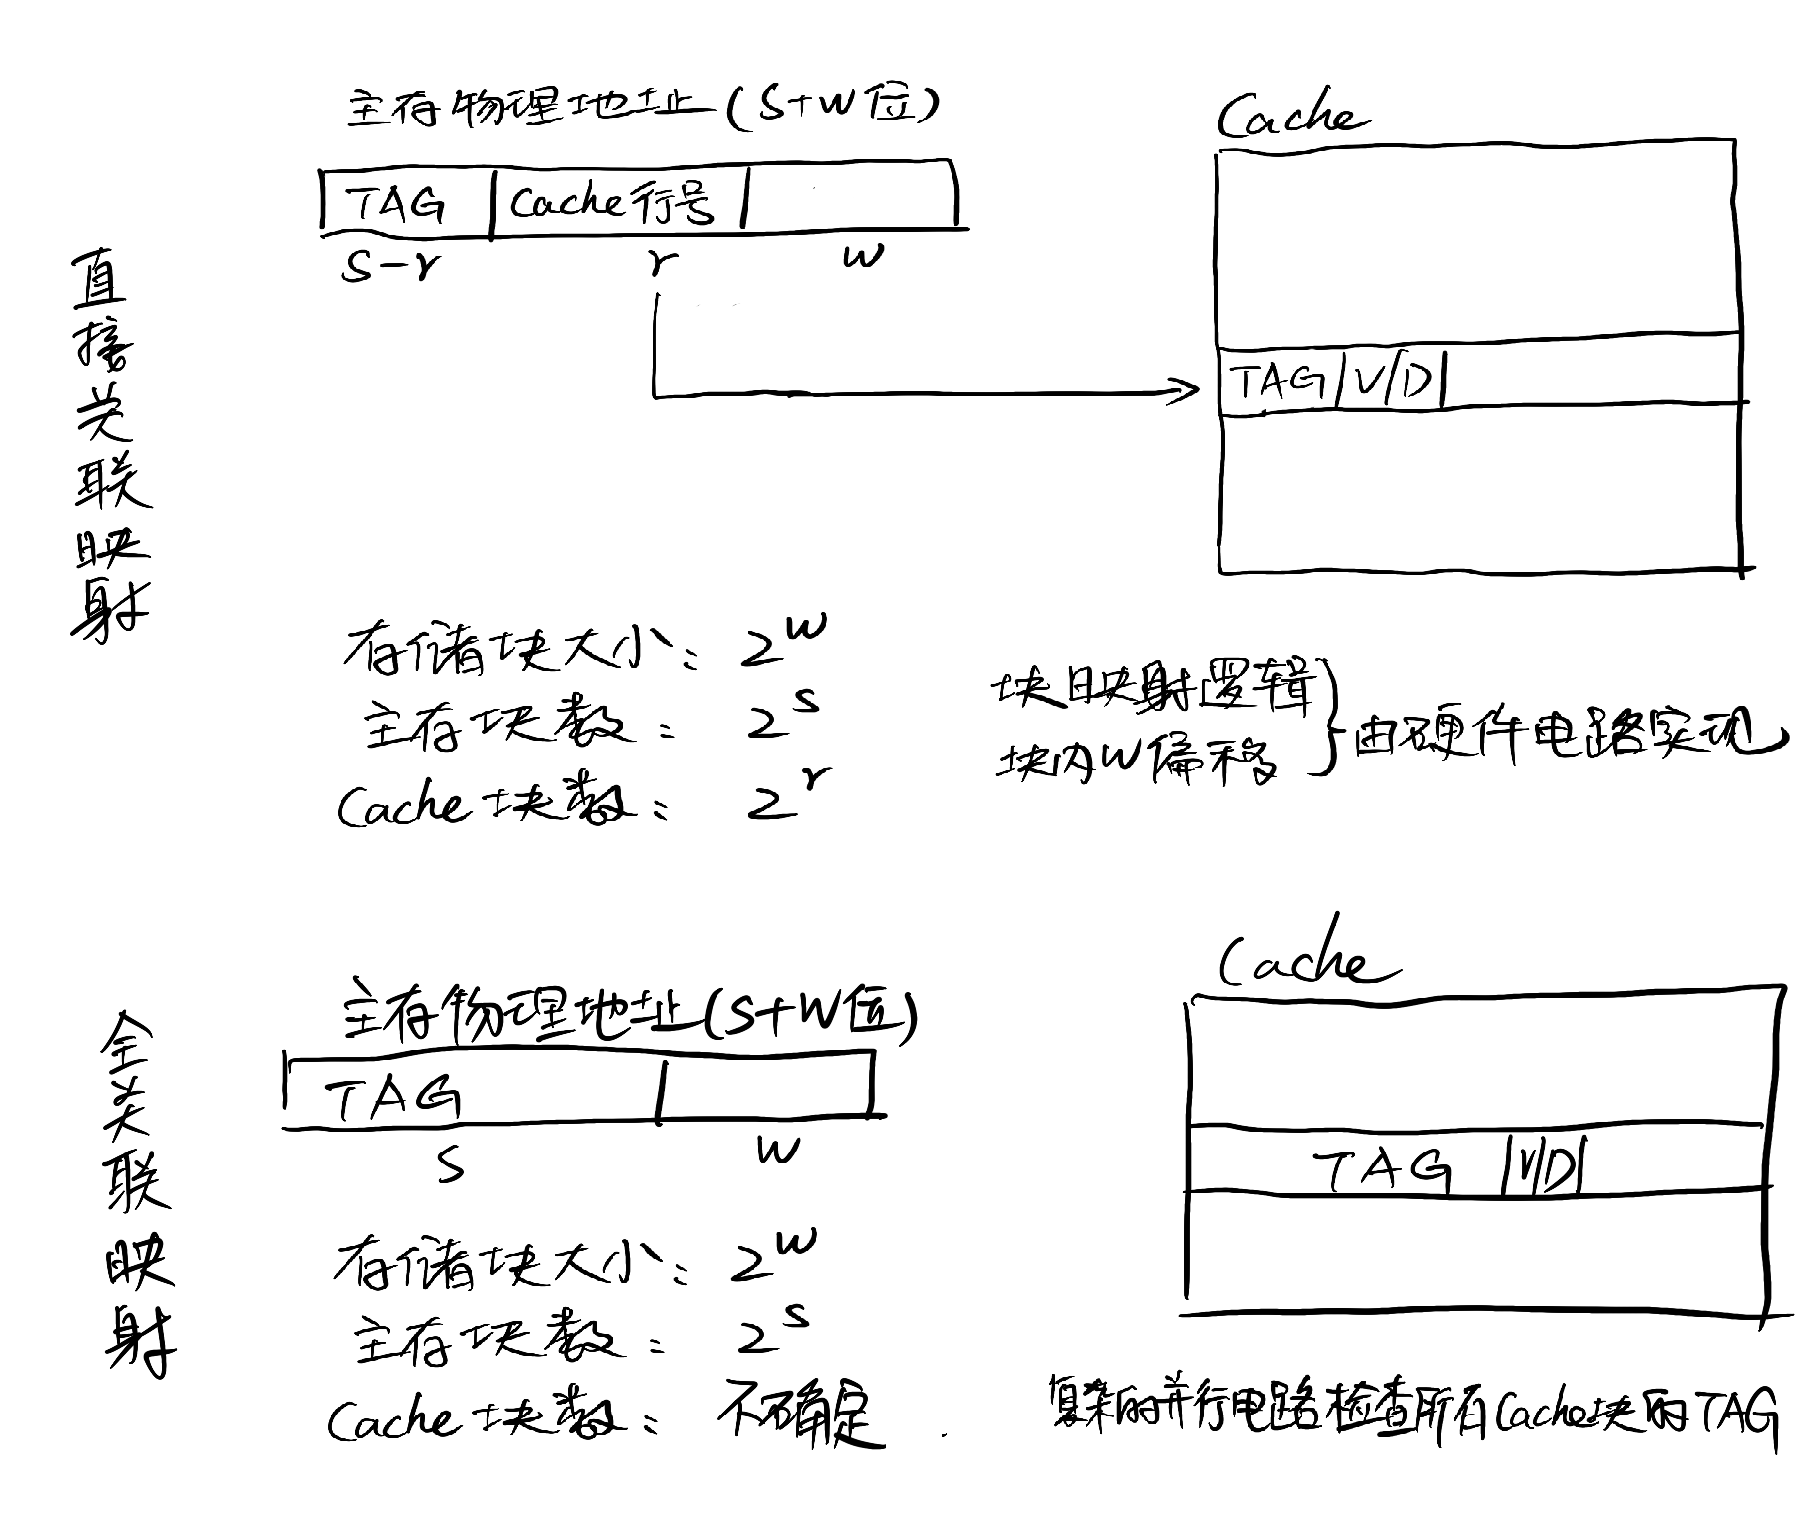 直接关联映射
主存物理地址(S+W位)
TAG Cache行号
S-r r w
Cache
TAG|V|D|
存储块大小: 2^w
主存块数: 2^s
Cache块数: 2^r
块映射逻辑
块内W偏移
由硬件电路实现
全关联映射
主存物理地址(S+W位)
TAG
S w
Cache
TAG |V|D|
存储块大小: 2^w
主存块数: 2^s
Cache块数: 不确定
复杂的并行电路检查所有Cache块的TAG